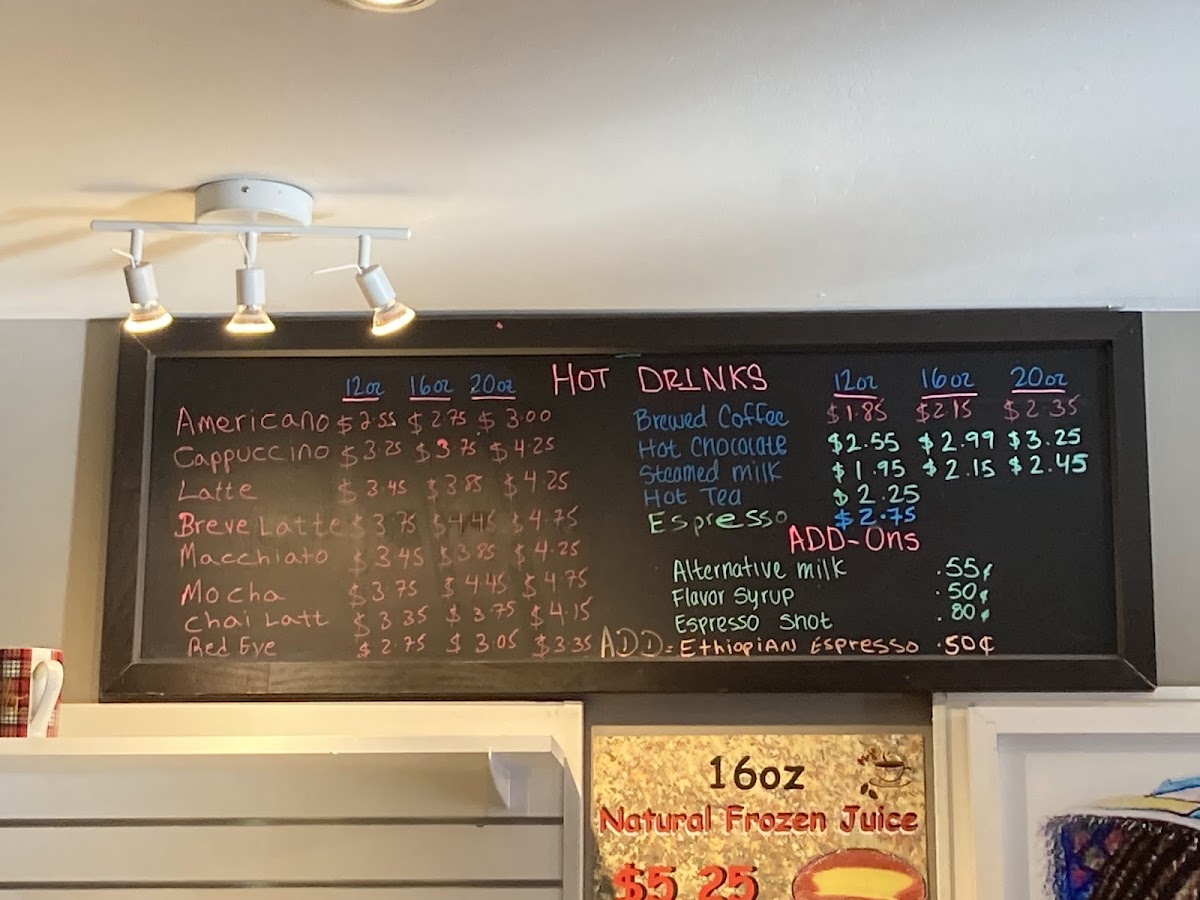 HOT DRINKS
12oz 16oz 20oz
Americano $2.55 $2.75 $3.00
Cappuccino $3.25 $3.75 $4.25
Latte $3.45 $3.85 $4.25
Breve Latte $3.75 $4.45 $4.75
Macchiato $3.45 $3.85 $4.25
Mocha $3.75 $4.45 $4.75
Chai Latt $3.35 $3.75 $4.15
Red Eye $2.75 $3.05 $3.35
12oz 16oz 20oz
Brewed Coffee $1.85 $2.15 $2.35
Hot Chocolate $2.55 $2.99 $3.25
Steamed milk $1.95 $2.15 $2.45
Hot Tea $2.25
Espresso $2.75
ADD-Ons
Alternative milk .55¢
Flavor Syrup .50¢
Espresso Shot .80¢
ADD: Ethiopian Espresso .50¢
16oz
Natural Frozen Juice
$5.25